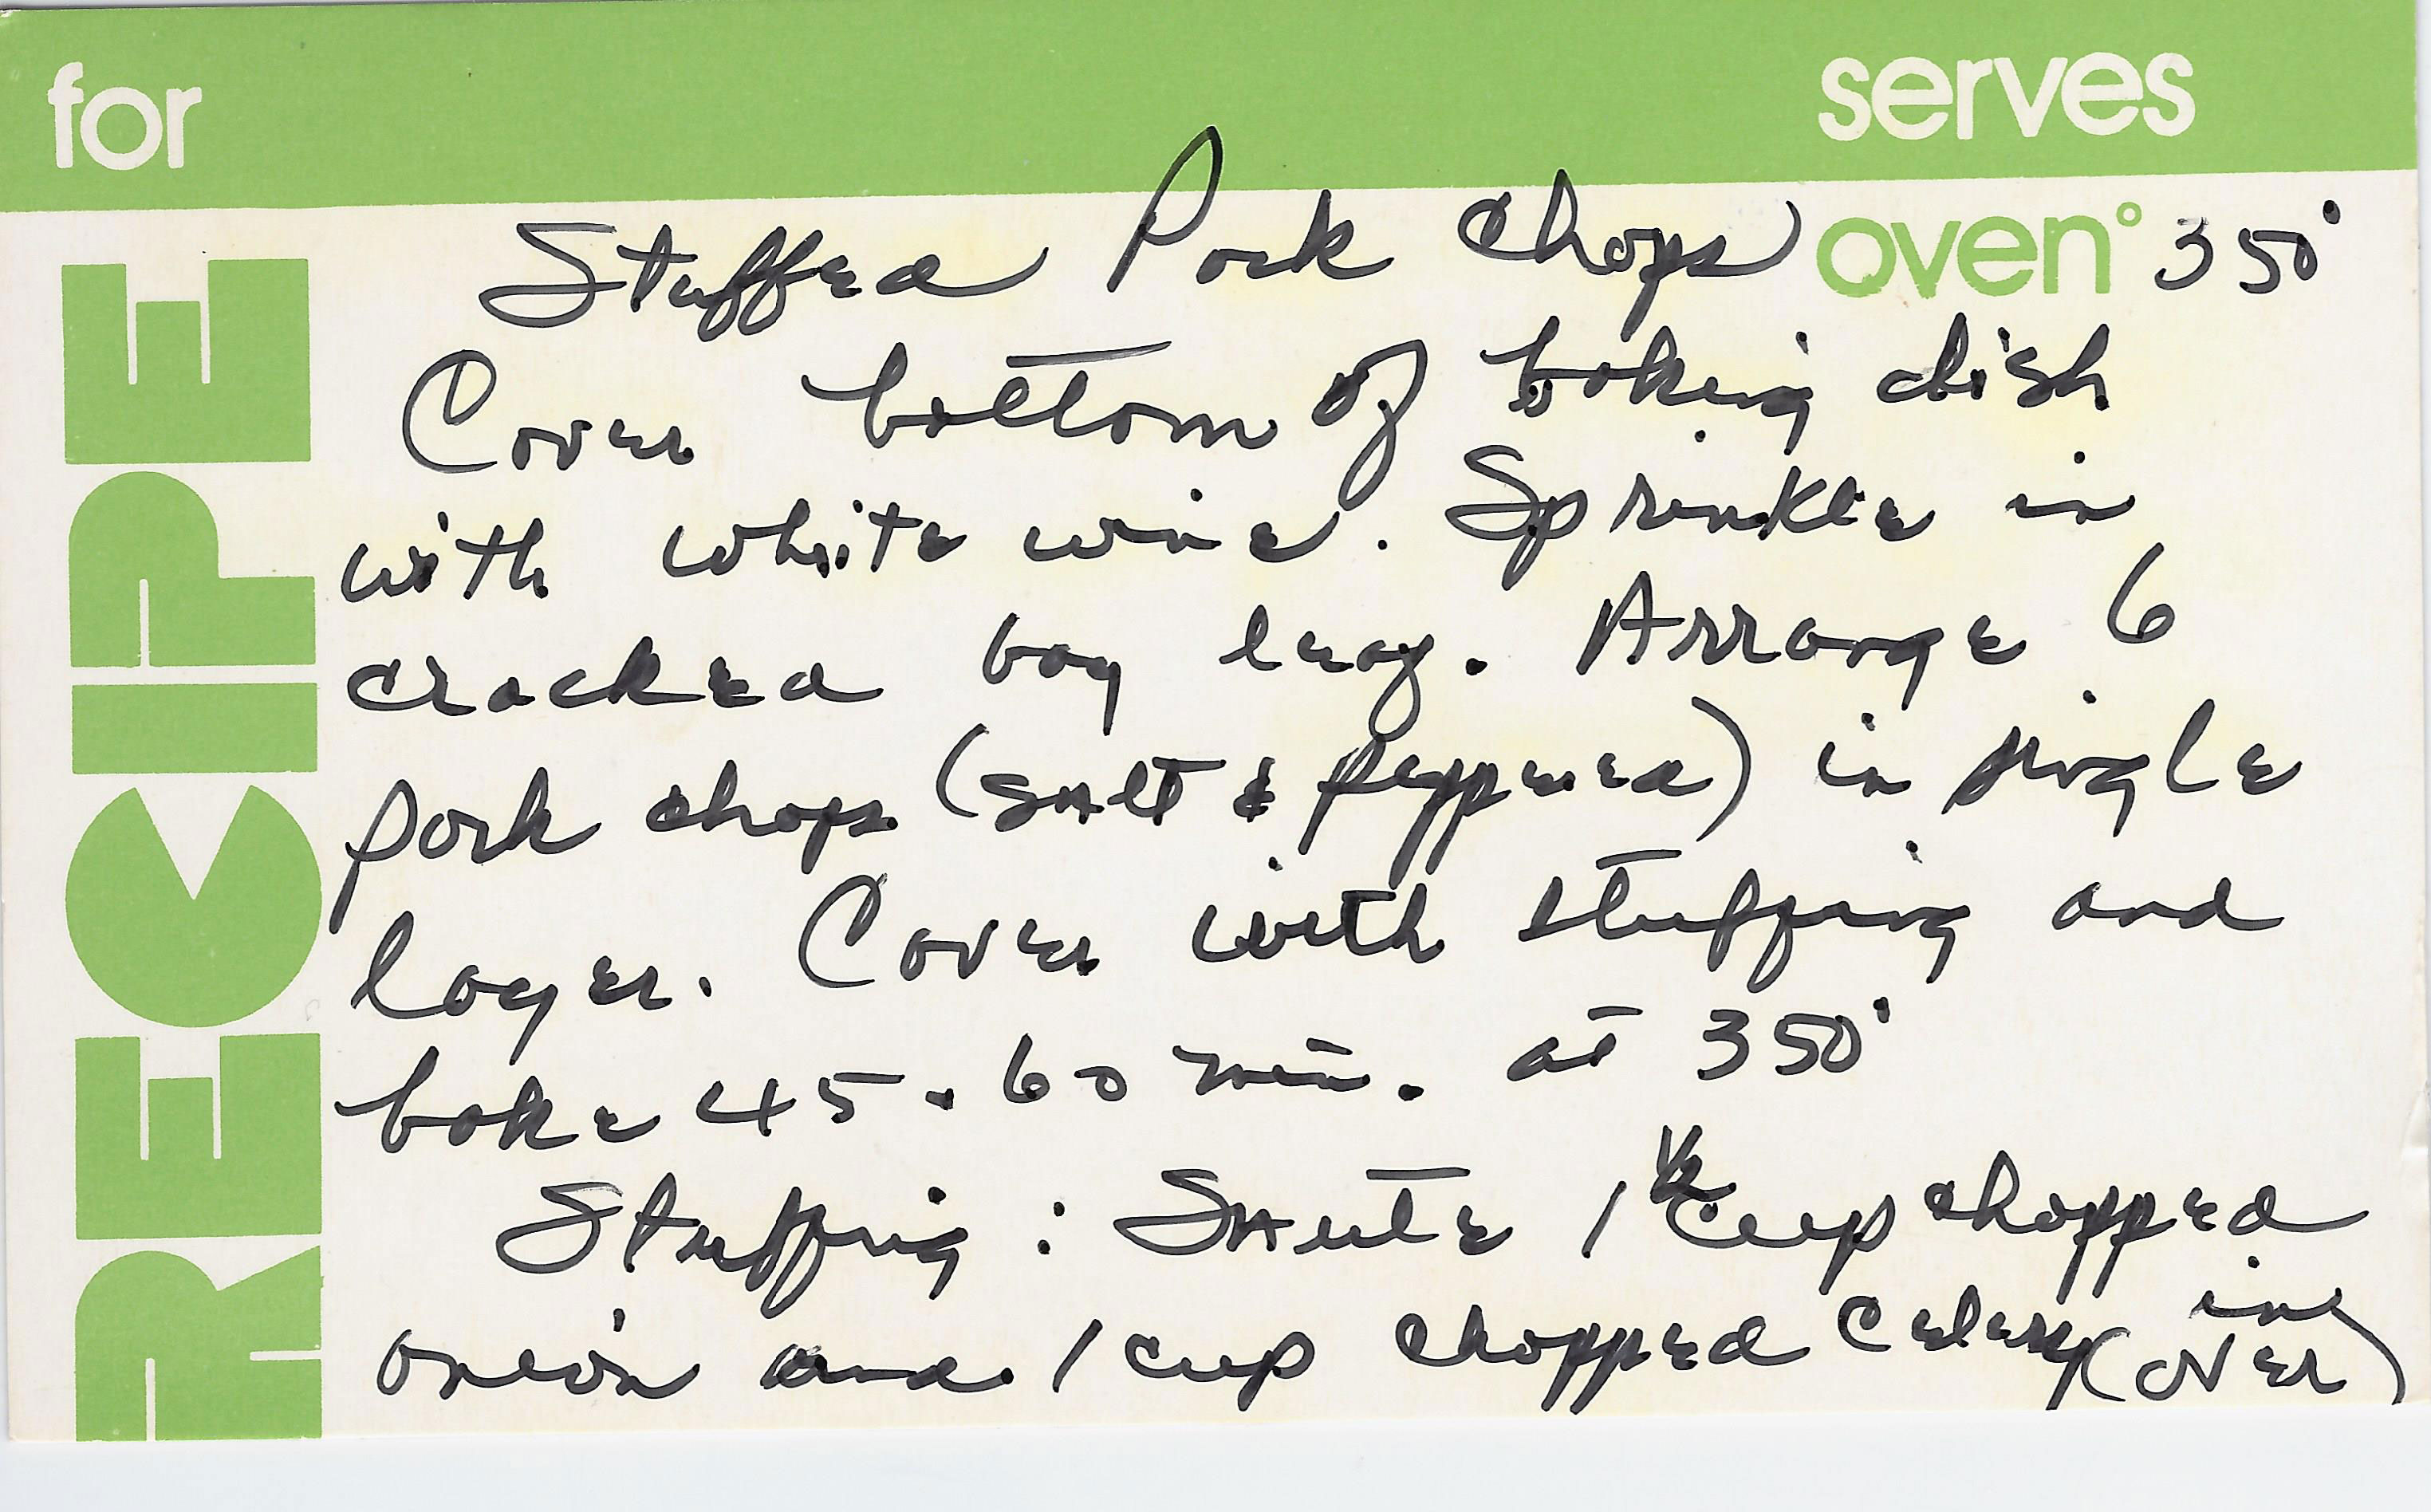 for serves
RECIPE
Stuffed Pork Chops oven° 350°
Cover bottom of baking dish
with white wine. Sprinkle in
cracked bay leaf. Arrange 6
pork chops (salt & peppered) in single
layer. Cover with stuffing and
bake 45-60 min. at 350°
Stuffing: Saute 1 1/2 cup chopped
onion and 1 cup chopped celery in
(over)